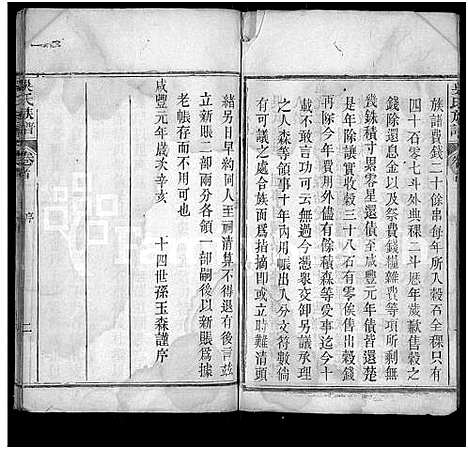 族譜費錢二十餘串每年所入穀石全稞只有
四十石零七斗外典稞二斗厯年歲歉售穀之
錢除還息金以及祭費錢糧雜費等項所剩無
幾銖積寸累零星還債至咸豐元年債皆還楚
是年除讓實收穀三十八石有零俟售出穀錢
再除今年費用外儘有餘積森等受事迄今十
載不敢言功可云無過今憑衆交卸另議承理
之人森等領事十年內用帳出入分文符數倘
有可議之處合族面爲拮摘即或立時難清頭
緒另日早約同人至祠清算不得退有後言茲
立新賬二部兩分各領一部嗣後以新賬爲據
老帳存而不用可也
咸豐元年歲次辛亥　十四世孫玉森謹序
吳氏族譜
卷首
序
二